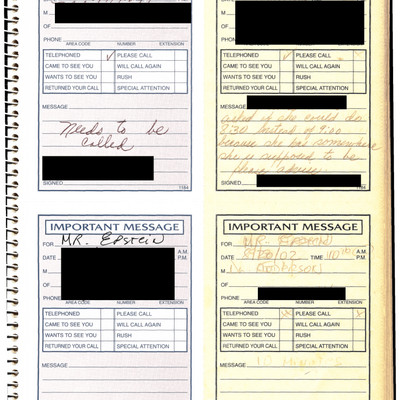 M
OF
PHONE
AREA CODE NUMBER EXTENSION
TELEPHONED ✓ PLEASE CALL
CAME TO SEE YOU WILL CALL AGAIN
WANTS TO SEE YOU RUSH
RETURNED YOUR CALL SPECIAL ATTENTION
MESSAGE
Needs to be
called
SIGNED 1184
M
OF
PHONE
AREA CODE NUMBER EXTENSION
TELEPHONED PLEASE CALL
CAME TO SEE YOU WILL CALL AGAIN
WANTS TO SEE YOU RUSH
RETURNED YOUR CALL SPECIAL ATTENTION
MESSAGE
if she could do
8:30 instead of 9:00
because she has somewhere
she is supposed to be
Please advise
SIGNED 1184
IMPORTANT MESSAGE
FOR MR. EPSTEIN
DATE TIME A.M. P.M.
M
OF
PHONE
AREA CODE NUMBER EXTENSION
TELEPHONED PLEASE CALL
CAME TO SEE YOU WILL CALL AGAIN
WANTS TO SEE YOU RUSH
RETURNED YOUR CALL SPECIAL ATTENTION
MESSAGE
IMPORTANT MESSAGE
FOR MR. EPSTEIN
DATE /02 TIME A.M. P.M.
M
OF
PHONE
AREA CODE NUMBER EXTENSION
TELEPHONED PLEASE CALL
CAME TO SEE YOU WILL CALL AGAIN
WANTS TO SEE YOU RUSH
RETURNED YOUR CALL SPECIAL ATTENTION
MESSAGE
10 minutes